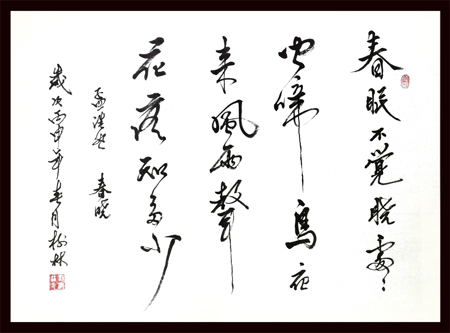 春眠不覺晓處々
闻啼鳥夜
来風雨聲
花落知多少
孟浩然 春晓
歲次丙申年春月树林